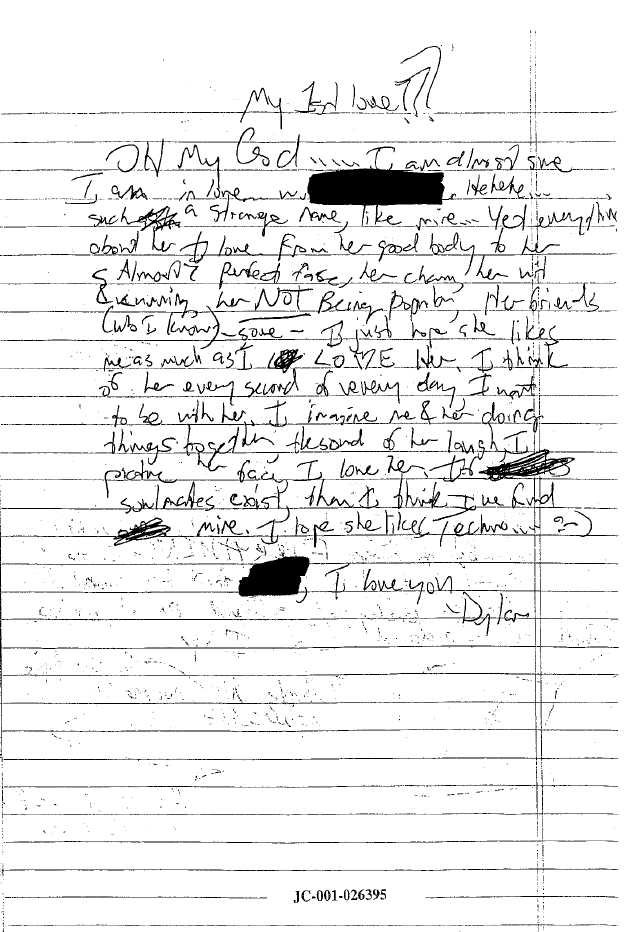 My 1st love???
OH My God..... I am almost sure
I am in love... w. . Hehehe...
such a strange name, like mine... Yet everything
about her I love. From her good body to her
Almost perfect face, her charm, her wit
& cunning, her NOT Being popular, Her friends
(who I know) - some - I just hope she likes
me as much as I LOVE Her. I think
of her every second of every day. I want
to be with her. I imagine me & her doing
things together, the sound of her laugh, I
picture her face, I love her. If
soulmates exist, then I think I've found
mine. I hope she likes Techno... :-)
, I love you
-Dylan
JC-001-026395